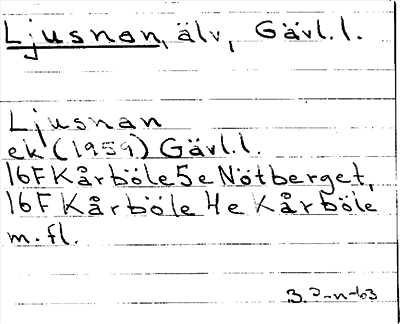 Ljusnan, älv, Gävl.l.
Ljusnan
ek (1959) Gävl.l.
16F Kårböle 5e Nötberget,
16F Kårböle 4e Kårböle
m.fl.